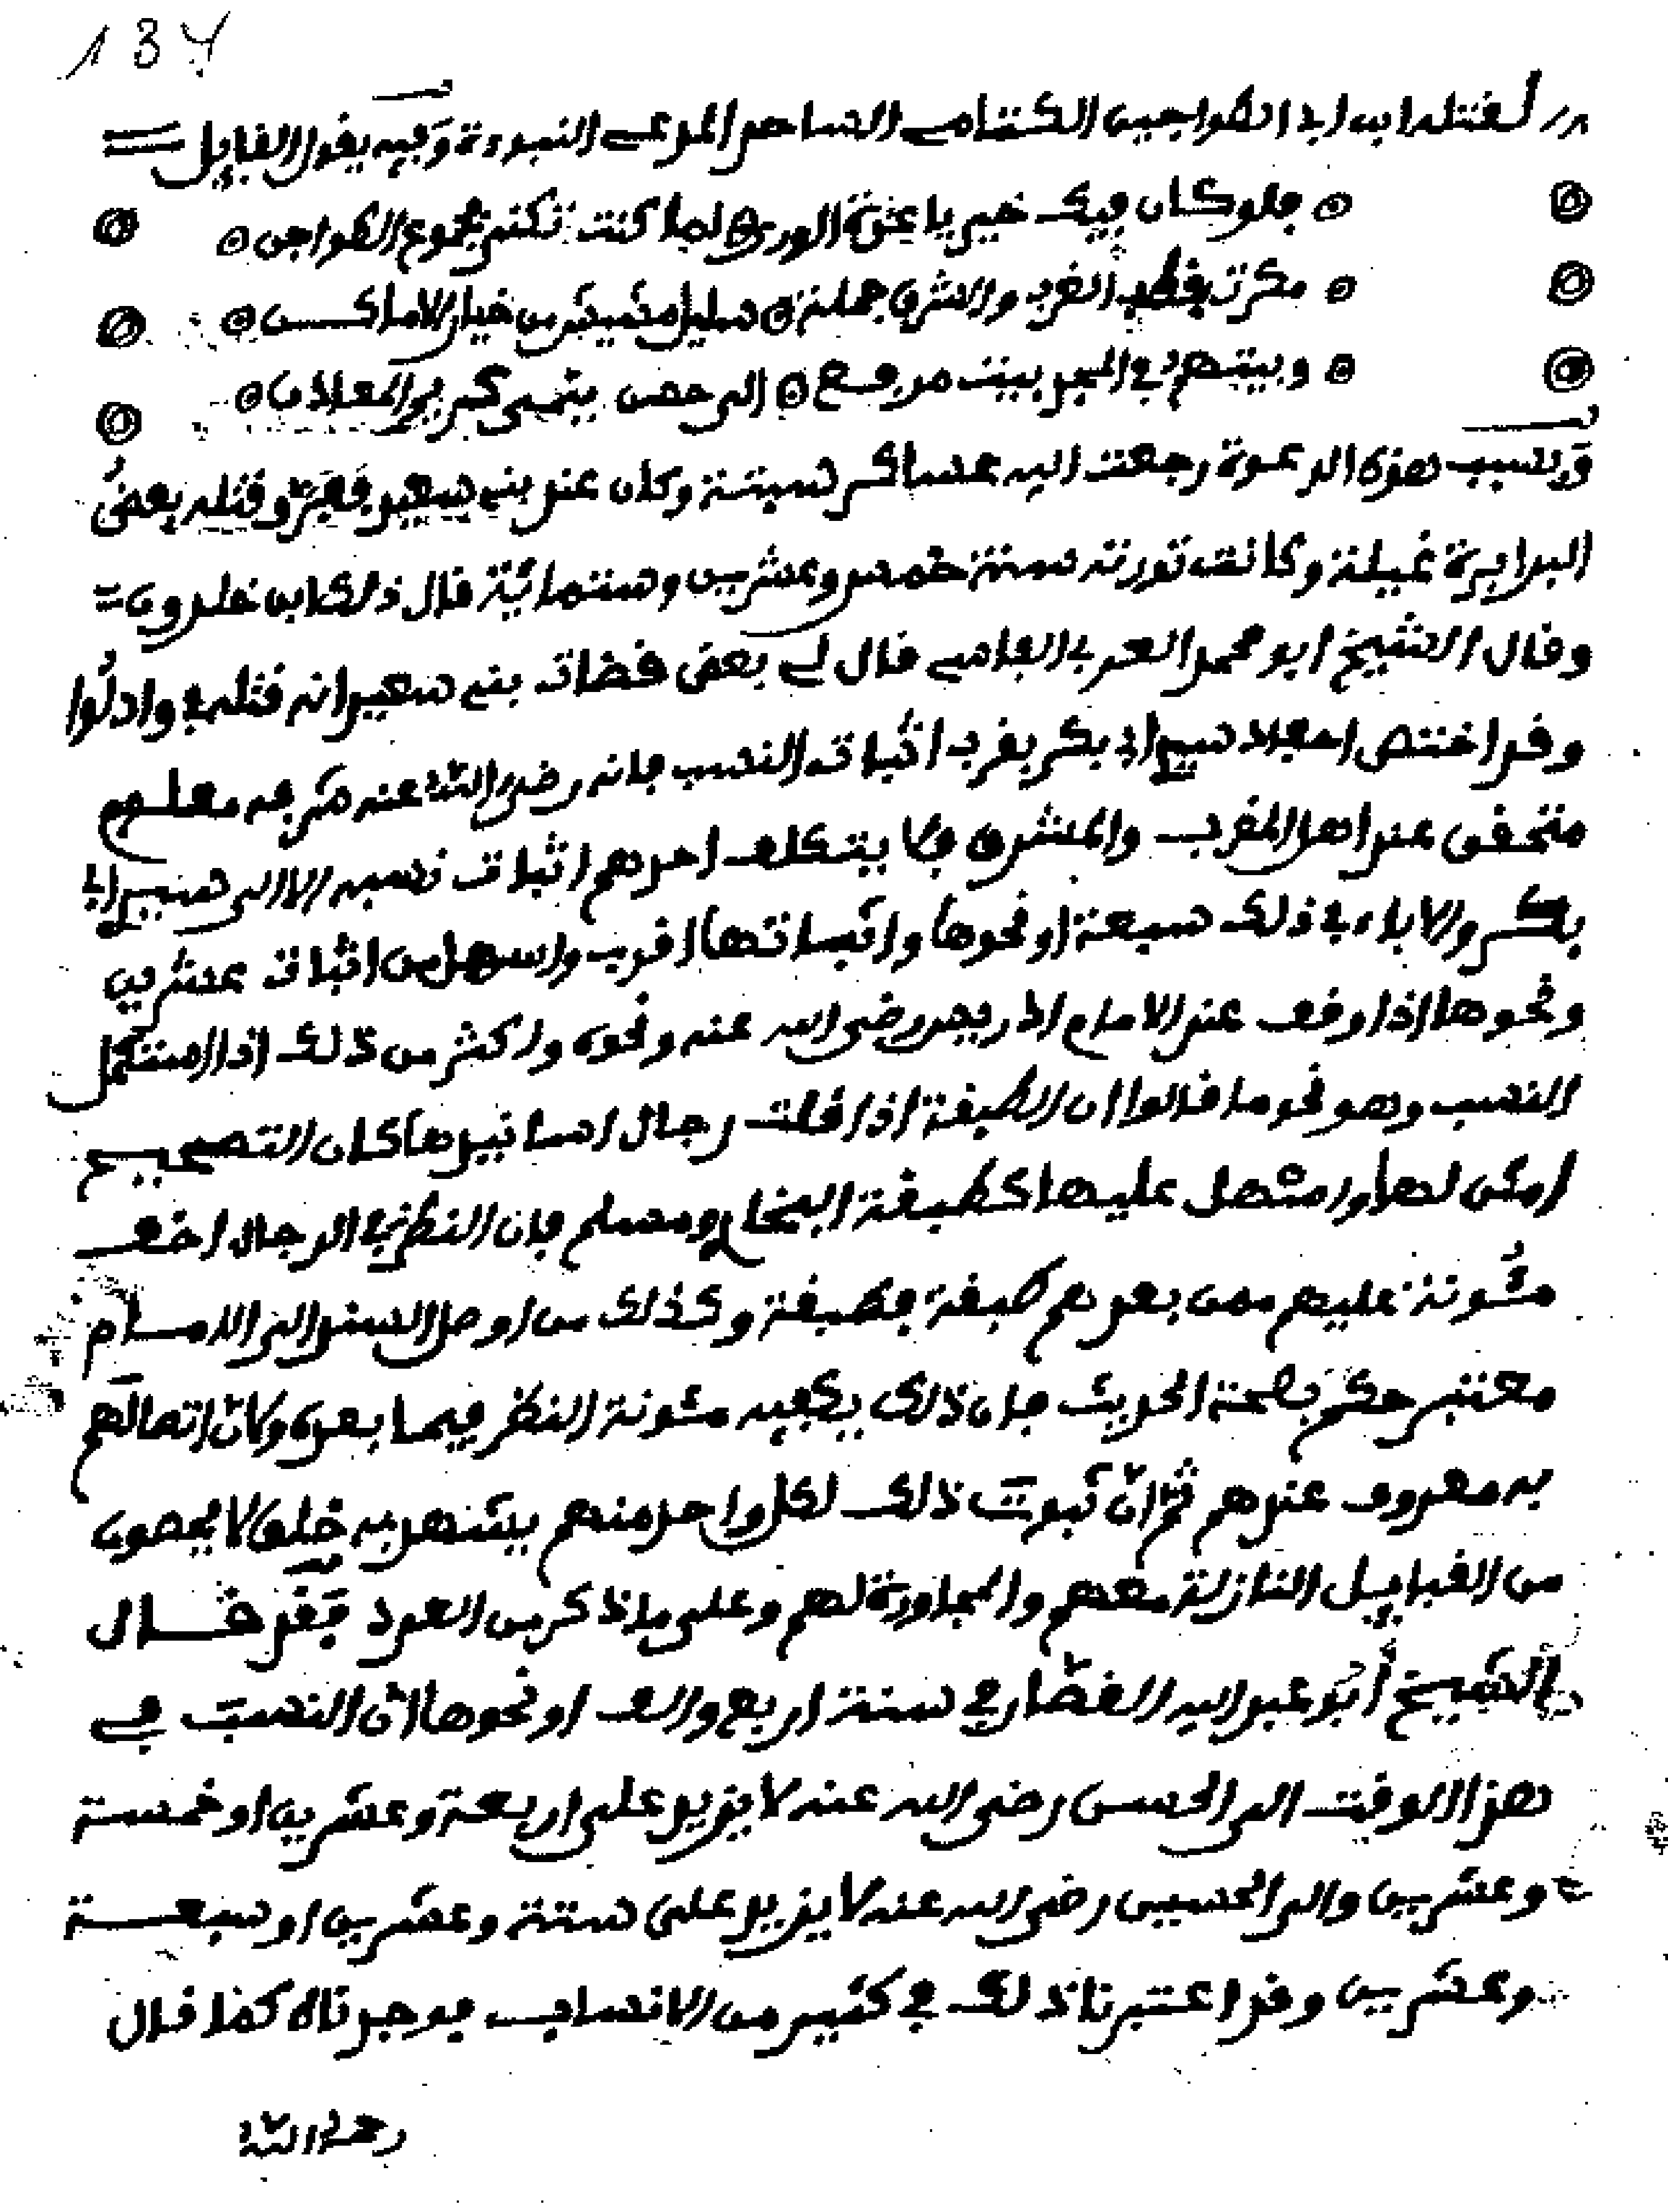 134
لفتله ابن ابي الطواجين الكتامي الساحر المدعي النبوءة وفيه يقول القايل
فلو كان فيك خير يا عنزة الورى لما كنت تكنى بجموع الطواجن
مكرت بقطب الغرب والشرق جملة سليل مشيش من خيار الاماكن
وبيتهم في المجد بيت مرفع الى حسن ينمى كريم المعادن
وبسبب هذه الدعوة رجعت اليه عساكر سبتة وكان عند بني سعيد ففر وقتله بعض
البرابرة غيلة وكانت ثورته سنة خمس وعشرين وستمائة قال ذلك ابن خلدون
وقال الشيخ ابو محمد العربي الفاسي قال لي بعض قضات بني سعيد انه قتله بواد لوا
وقد اختص احفاد سيدي ابي بكر بقرب اثبات النسب فانه رضي الله عنه شرفه معلوم
متحقق عند اهل المغرب والمشرق فما يتكلف احدهم اثبات نسبه الا الى سيدي ابي
بكر والاباء في ذلك سبعة او نحوها واثباتها اقرب واسهل من اثبات عشرين
ونحوها اذا وقف عند الامام ادريس رضي الله عنه ونحوه واكثر من ذلك اذا استكمل
النسب وهو نحو ما قالوا ان الطبقة اذا قلت رجال اسانيدها كان التصحيح
امكن لها واسهل عليها كطبقة البخاري ومسلم فان النظر في الرجال اخف
مئونة عليهم ممن بعدهم طبقة فطبقة وكذلك من اوصل السند الى الامام
معتبر حكم بصحة الحديث فان ذلك يكفيه مئونة النظر فيما بعده وكان اتصالهم
به معروف عندهم ثم ان ثبوت ذلك لكل واحد منهم يشهد به خلق لا يحصون
من القبايل النازلة معهم والمجاورة لهم وعلى ما ذكر من العدد فقد قال
الشيخ ابو عبد الله القصار في سنة اربع والف او نحوها ان النسب في
هذا الوقت الى الحسن رضي الله عنه لا يزيد على اربعة وعشرين او خمسة
وعشرين والى الحسين رضي الله عنه لا يزيد على ستة وعشرين او سبعة
وعشرين وقد اعتبرنا ذلك في كثير من الانساب فوجدناه كما قال
رحمه الله